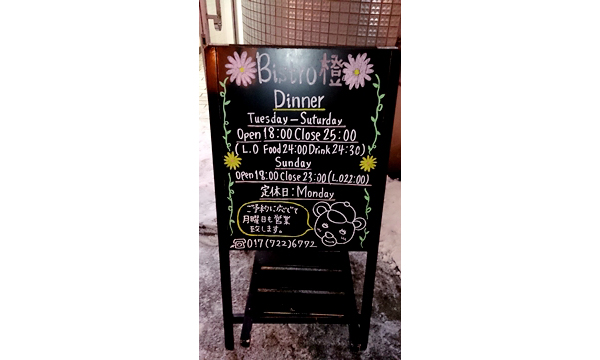 Bistro橙
Dinner
Tuesday-Suturday
Open 18:00 Close 25:00
(L.O Food 24:00 Drink 24:30)
Sunday
Open 18:00 Close 23:00 (L.O 22:00)
定休日:Monday
ご予約に応じて
月曜日も営業
致します。
☎017(722)6772